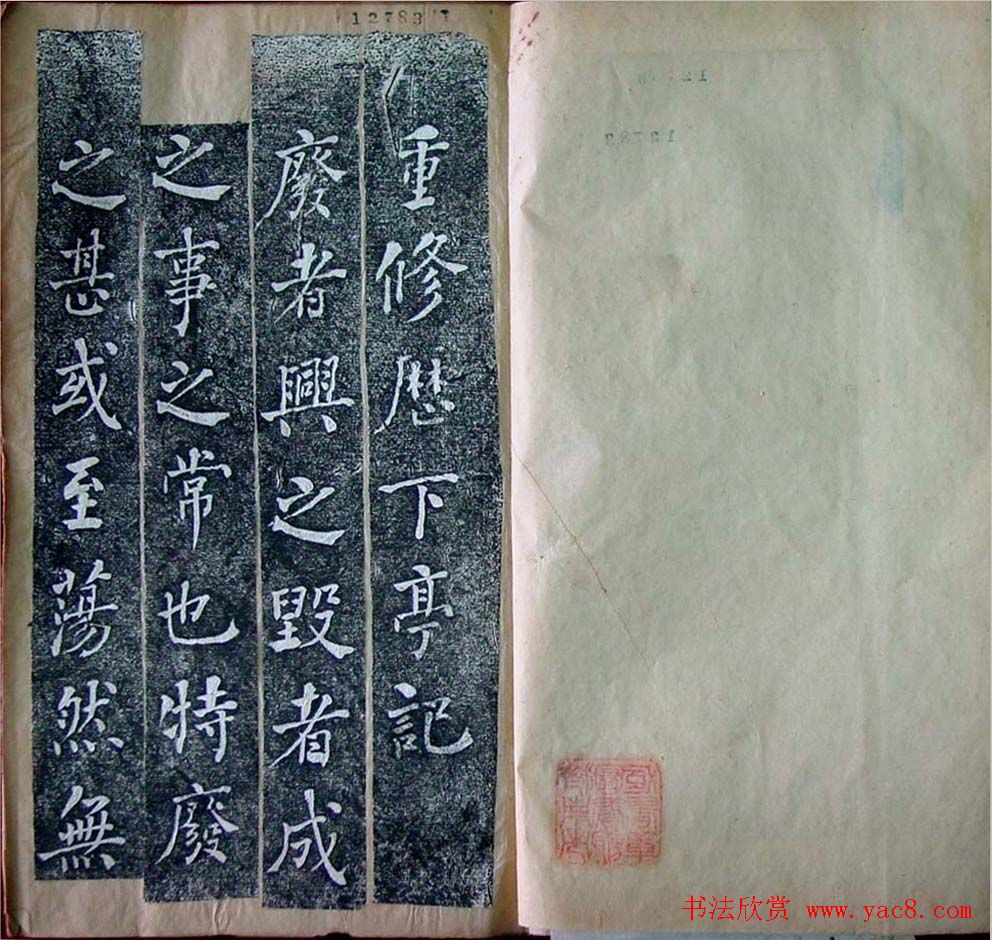 重修歷下亭記
廢者興之毀者成
之事之常也特廢
之甚或至蕩然無
12783
12783
书法欣赏 www.yac8.com